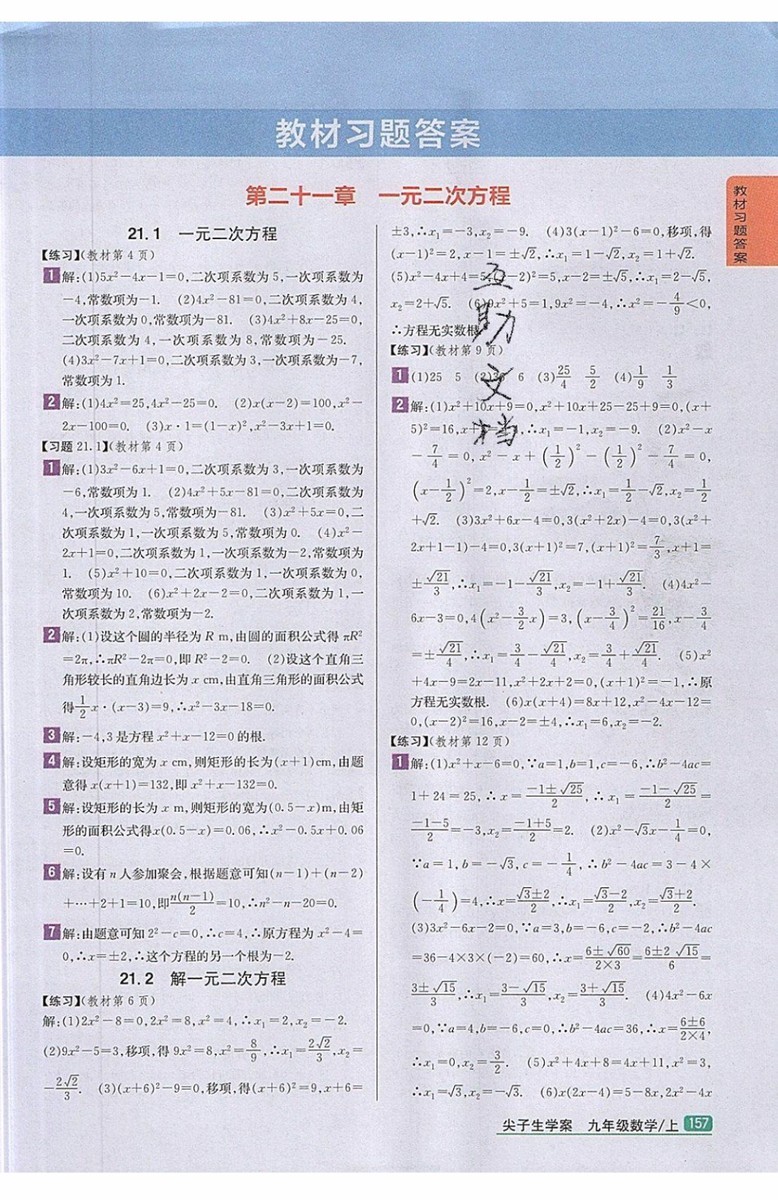 教材习题答案
第二十一章 一元二次方程
教材习题答案
21.1 一元二次方程
【练习】(教材第4页)
1 解:(1)5x²-4x-1=0,二次项系数为5,一次项系数为
-4,常数项为-1. (2)4x²-81=0,二次项系数为4,
一次项系数为0,常数项为-81. (3)4x²+8x-25=0,
二次项系数为4,一次项系数为8,常数项为-25.
(4)3x²-7x+1=0,二次项系数为3,一次项系数为-7,
常数项为1.
2 解:(1)4x²=25,4x²-25=0. (2)x(x-2)=100,x²-
2x-100=0. (3)x·1=(1-x)²,x²-3x+1=0.
【习题21.1】(教材第4页)
1 解:(1)3x²-6x+1=0,二次项系数为3,一次项系数为
-6,常数项为1. (2)4x²+5x-81=0,二次项系数为
4,一次项系数为5,常数项为-81. (3)x²+5x=0,二
次项系数为1,一次项系数为5,常数项为0. (4)x²-
2x+1=0,二次项系数为1,一次项系数为-2,常数项为
1. (5)x²+10=0,二次项系数为1,一次项系数为0,
常数项为10. (6)x²+2x-2=0,二次项系数为1,一
次项系数为2,常数项为-2.
2 解:(1)设这个圆的半径为R m,由圆的面积公式得πR²
=2π,∴πR²-2π=0,即R²-2=0. (2)设这个直角三
角形较长的直角边长为x cm,由直角三角形的面积公式
得1/2x·(x-3)=9,∴x²-3x-18=0.
3 解:-4,3是方程x²+x-12=0的根.
4 解:设矩形的宽为x cm,则矩形的长为(x+1)cm,由题
意得x(x+1)=132,即x²+x-132=0.
5 解:设矩形的长为x m,则矩形的宽为(0.5-x)m,由矩
形的面积公式得x(0.5-x)=0.06,∴x²-0.5x+0.06
=0.
6 解:设有n人参加聚会,根据题意可知(n-1)+(n-2)
+…+2+1=10,即n(n-1)/2=10,∴n²-n-20=0.
7 解:由题意可知2²-c=0,∴c=4,∴原方程为x²-4=
0,∴x=±2,∴这个方程的另一个根为-2.
21.2 解一元二次方程
【练习】(教材第6页)
解:(1)2x²-8=0,2x²=8,x²=4,∴x₁=2,x₂=-2.
(2)9x²-5=3,移项,得9x²=8,x²=8/9,∴x₁=2√2/3,x₂=
-2√2/3. (3)(x+6)²-9=0,移项,得(x+6)²=9,x+6=
±3,∴x₁=-3,x₂=-9. (4)3(x-1)²-6=0,移项,得
(x-1)²=2,x-1=±√2,∴x₁=1-√2,x₂=1+√2.
(5)x²-4x+4=5,(x-2)²=5,x-2=±√5,∴x₁=2-√5,
x₂=2+√5. (6)9x²+5=1,9x²=-4,∴x²=-4/9<0,
∴方程无实数根.
【练习】(教材第9页)
1 (1)25 5 (2)36 6 (3)25/4 5/2 (4)1/9 1/3
2 解:(1)x²+10x+9=0,x²+10x+25-25+9=0,(x+
5)²=16,x+5=±4,∴x₁=-1,x₂=-9. (2)x²-x
-7/4=0,x²-x+(1/2)²-(1/2)²-7/4=0,
(x-1/2)²=2,x-1/2=±√2,∴x₁=1/2-√2,x₂=1/2
+√2. (3)3x²+6x-4=0,3(x²+2x)-4=0,3(x²+
2x+1-1)-4=0,3(x+1)²=7,(x+1)²=7/3,x+1=
±√21/3,∴x₁=-1-√21/3,x₂=-1+√21/3. (4)4x²-
6x-3=0,4(x²-3/2x)=3,(x-3/4)²=21/16,x-3/4
=±√21/4,∴x₁=3/4-√21/4,x₂=3/4+√21/4. (5)x²
+4x-9=2x-11,x²+2x+2=0,(x+1)²=-1,∴原
方程无实数根. (6)x(x+4)=8x+12,x²-4x-12=
0,(x-2)²=16,x-2=±4,∴x₁=6,x₂=-2.
【练习】(教材第12页)
1 解:(1)x²+x-6=0,∵a=1,b=1,c=-6,∴b²-4ac=
1+24=25,∴x=-1±√25/2,∴x₁=-1-√25/2=
-1-5/2=-3,x₂=-1+5/2=2. (2)x²-√3x-1/4=0,
∵a=1,b=-√3,c=-1/4,∴b²-4ac=3-4×
(-1/4)=4,∴x=√3±2/2,∴x₁=√3-2/2,x₂=√3+2/2.
(3)3x²-6x-2=0,∵a=3,b=-6,c=-2,∴b²-4ac
=36-4×3×(-2)=60,∴x=6±√60/2×3=6±2√15/6=
3±√15/3,∴x₁=3-√15/3,x₂=3+√15/3. (4)4x²-6x
=0,∵a=4,b=-6,c=0,∴b²-4ac=36,∴x=6±6/2×4,
∴x₁=0,x₂=3/2. (5)x²+4x+8=4x+11,x²=3,
∴x₁=√3,x₂=-√3. (6)x(2x-4)=5-8x,2x²-4x
互助文档
尖子生学案 九年级数学/上 157